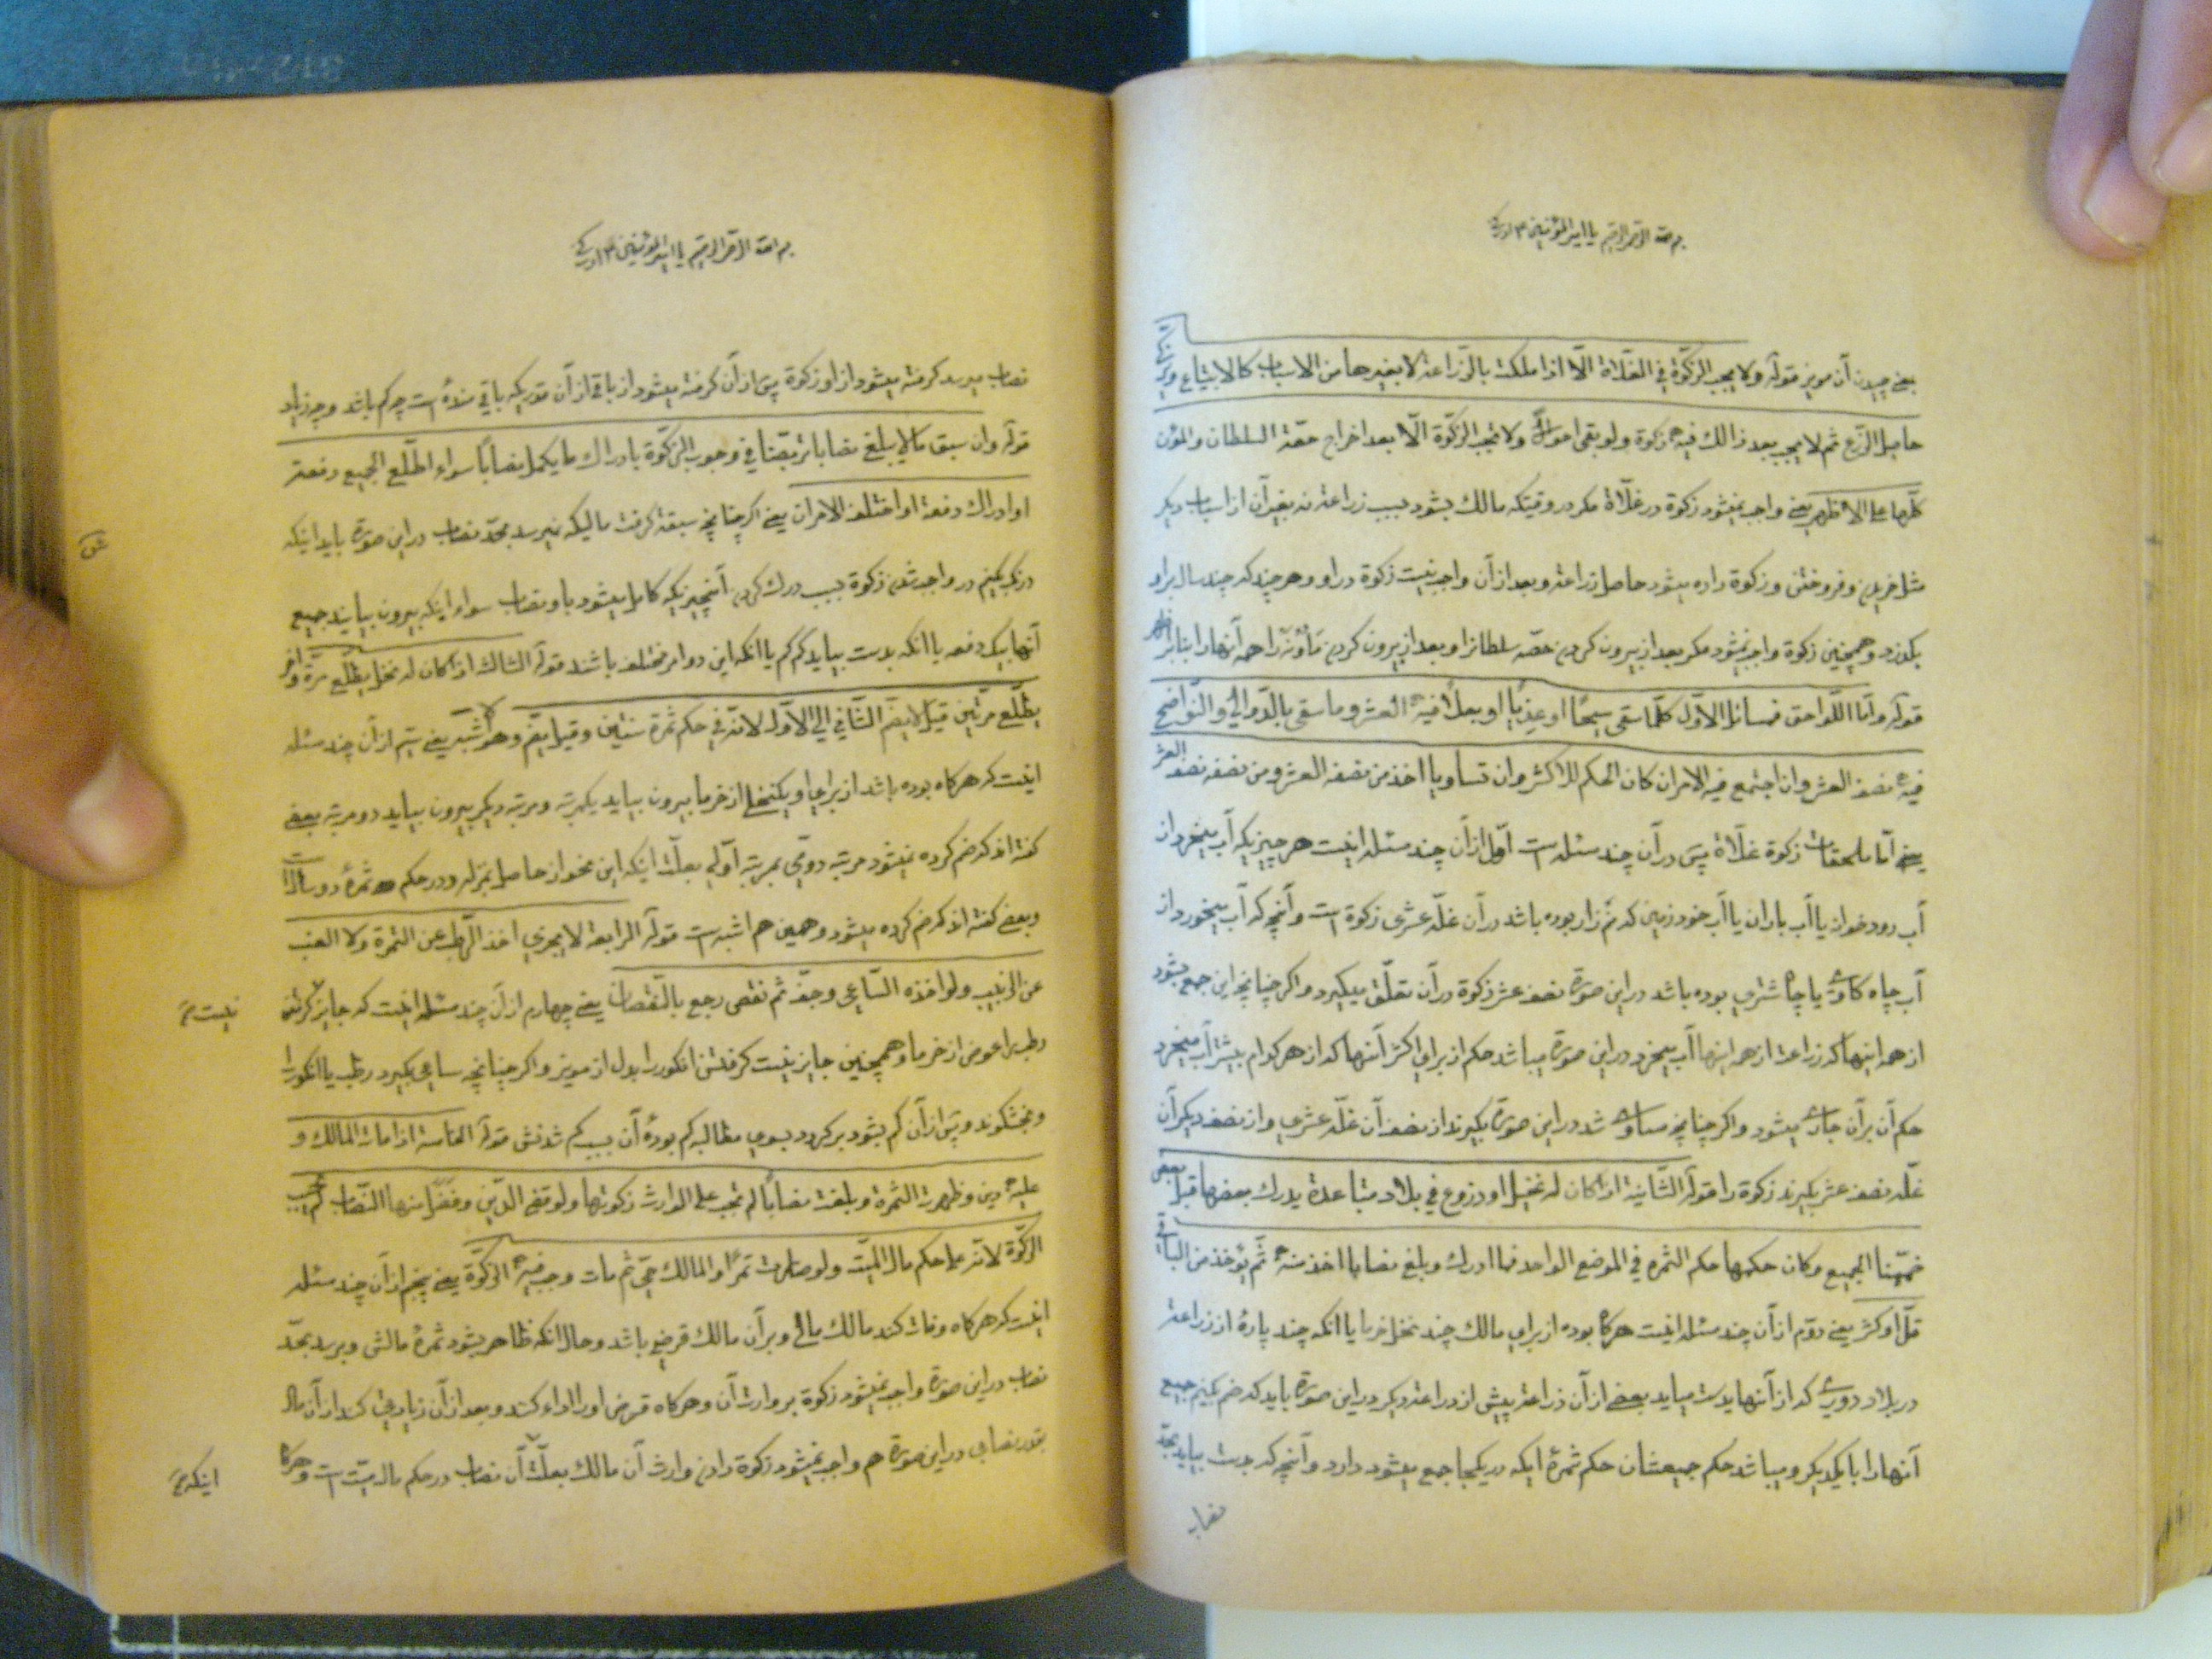 بسم الله الرحمن الرحیم یا امیر المؤمنین ادرکنی
یعنی چیدن آن مویز قوله ولا یجب الزکوة فی الغلاة الّا اذا ملکت بالزّراعة لا بغیرها من الاسباب کالابتیاع ویزکی
حاصل الزرع ثم لا یجب بعد ذالک فیه زکوة ولو بقی احوالاً ولا تجب الزکوة الّا بعد اخراج حصّة السلطان والمؤن
کلّها علی الاظهر یعنی واجب نمیشود زکوة در غلّاة مکر در وقتیکه مالک بشود بسبب زراعة نه بغیر آن از اسباب دیکر
مثل خریدن و فروختن و زکوة داده میشود حاصل زراعة و بعد از آن واجب نیست زکوة در او و هر چند که چند سال بر او
بکذرد و همچنین زکوة واجب نمیشود مکر بعد از بیرون کردن حصّه سلطانرا و بعد از بیرون کردن مأونة را همه آنها را بنابر اظهر
قوله وامّا اللّواحق فمسائل الاوّل کلّما سقی سیحًا او عذیًا او بعلًا فیه العشر وما سقی بالدّوالی والنّواضح
فیه نصف العشر وان اجتمع فیه الامران کان الحکم للاکثر وان تساویا اخذ من نصفه العشر ومن نصفه نصف العشر
یعنی امّا ملحقات زکوة غلّاة پس در آن چند مسئله است اوّل از آن چند مسئله اینست هر چیزیکه آب میخورد از
آب رودخوانه یا آب باران یا آب خود زمین که نم زار بوده باشد در آن غلّه عشری زکوة است و آنچه که آب میخورد از
آب چاه کاوی یا چاه شتری بوده باشد در این صورة نصف عشر زکوة در آن تعلّق میکیرد و اکر چنانچه این جمع بشود
از همه اینها که زراعة از همه اینها آب میخورد در این صورة میباشد حکم از برای اکثر آنها که از هر کدام بیشتر آب میخورد
حکم آن بر آن جاری میشود و اکر چنانچه مساوی شد در این صورة بکیرند از نصف آن غلّه عشری و از نصف دیکر آن
غلّه نصف عشر بکیرند زکوة را قوله الثّانیة اذا کان له نخیل او زروع فی بلاد متباعدة یدرک بعضها قبل بعض
ضممنا الجمیع وکان حکمها حکم الثمره فی الموضع الواحد فما ادرک وبلغ نصابا اخذ منه ثم یؤخذ من الباقی
قلّ او کثر یعنی دوّم از آن چند مسئله اینست هرکاه بوده از برای مالک چند نخل خرما یا انکه چند پارهٔ از زراعة
در بلاد دوری که از آنها بدست میاید بعضی از آن زراعة پیش از زراعة دیکر در این صورة باید که ضم بکنیم جمیع
آنها را با یکدیکر و میباشد حکم جمیعشان حکم ثمرهٔ ایکه در یکجا جمع میشود دارد و آنچه که بدست بیاید بحدّ
نصاب
بسم الله الرحمن الرحیم یا امیر المؤمنین ادرکنی
نصاب میرسد کرفته میشود از او زکوة پس از آن کرفته میشود از باقی از آن قدریکه باقی مندهٔ است چه کم باشد و چه زیاد
قوله وان سبق ما لا یبلغ نصابا تربّصنا فی وجوب الزکوة بادراک ما یکمل نصاباً سواء اطّلع الجمیع دفعة
او ادراک دفعة او اختلف الامران یعنی اکر چنانچه سبقة کرفت مالیکه نمیرسد بحدّ نصاب در این صورة باید اینکه
درنک بکنیم در واجب شدن زکوة بسبب درک کردن آنچیزیکه کامل میشود باو نصاب سواء اینکه بیرون بیایند جمیع
آنها بیک دفعه یا انکه بدست بیاید کم کم یا انکه این دو امر مختلف باشند قوله الثالث اذا کان له نخل یطّلع مرّة واخر
یطّلع مرّتین قیل لا یضم الثانی الی الاوّل لانّه فی حکم ثمرة سنتین وقیل یضم وهو الاشبه یعنی سیّم از آن چند مسئله
اینست که هرکاه بوده باشد از برای او یکنخل از خرما بیرون بیاید یکمرتبه و مرتبه دیکر بیرون بیاید دو مرتبه بعضی
کفته اند که ضم کرده نمیشود مرتبه دویّمی بمرتبه اوّلی بعلّة اینکه این نخو از حاصل بمنزله و در حکم ثمرهٔ دو سال است
و بعضی کفته اند که ضم کرده میشود و همین هم اشبه است قوله الرابعة لا یجزی اخذ الرّطب عن الثمرة ولا العنب
عن الزبیب ولو اخذه السّاعی وجفّ ثم نقص رجع بالنّقصان یعنی چهارم از آن چند مسئله اینست که جایز نیست کرفتن
رطب را عوض از خرما و همچنین جایز نیست کرفتن انکور را بدل از مویز و اکر چنانچه ساعی بکیرد رطب یا انکور را
و بخشکوند و پس از آن کم بشود بر کردد بسوی مطالبه کم بودهٔ آن بسبب کم شدنش قوله الخامسة اذا مات المالک و
علیه دین وظهرت الثمرة وبلغت نصابًا لم تجب علی الوارث زکوتها ولو قضی الدّین وفضل منها النّصاب لم تجب
الزکوة لانّه علی حکم مال المیّت ولو صارت تمرًا والمالک حیّ ثم مات وجب فیه الزّکوة یعنی پنجم از آن چند مسئله
اینست که هرکاه وفات کند مالک مالی و بر آن مالک قرضی باشد و حال انکه ظاهر بشود ثمرهٔ مالش و برسد بحدّ
نصاب در این صورة واجب نمیشود زکوة بر وارث آن و هرکاه قرض او را اداء کند و بعد از آن زیادی کند از آن مال
بقدر نصابی در این صورة هم واجب نمیشود زکوة دادن وارث آن مالک بعلّة آن نصاب در حکم مال میّت است و هرکاه
نیست صح
اینکه صح